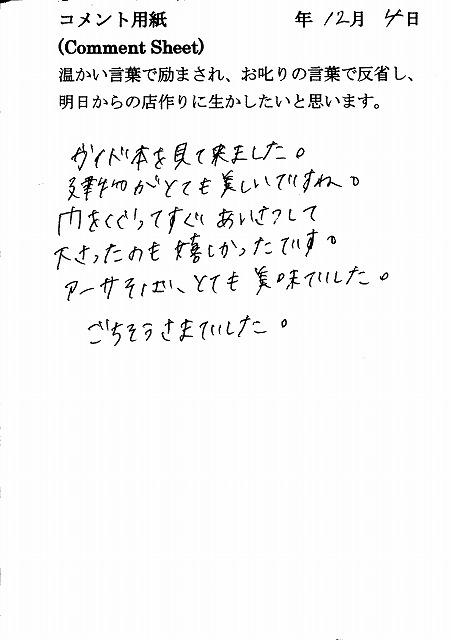 コメント用紙 年 12月 4日
(Comment Sheet)
温かい言葉で励まされ、お叱りの言葉で反省し、
明日からの店作りに生かしたいと思います。
ガイド本を見て来ました。
建物がとても美しいですね。
門をくぐってすぐ あいさつして
下さったのも 嬉しかったです。
アーサそば、とても 美味でした。
ごちそうさまでした。